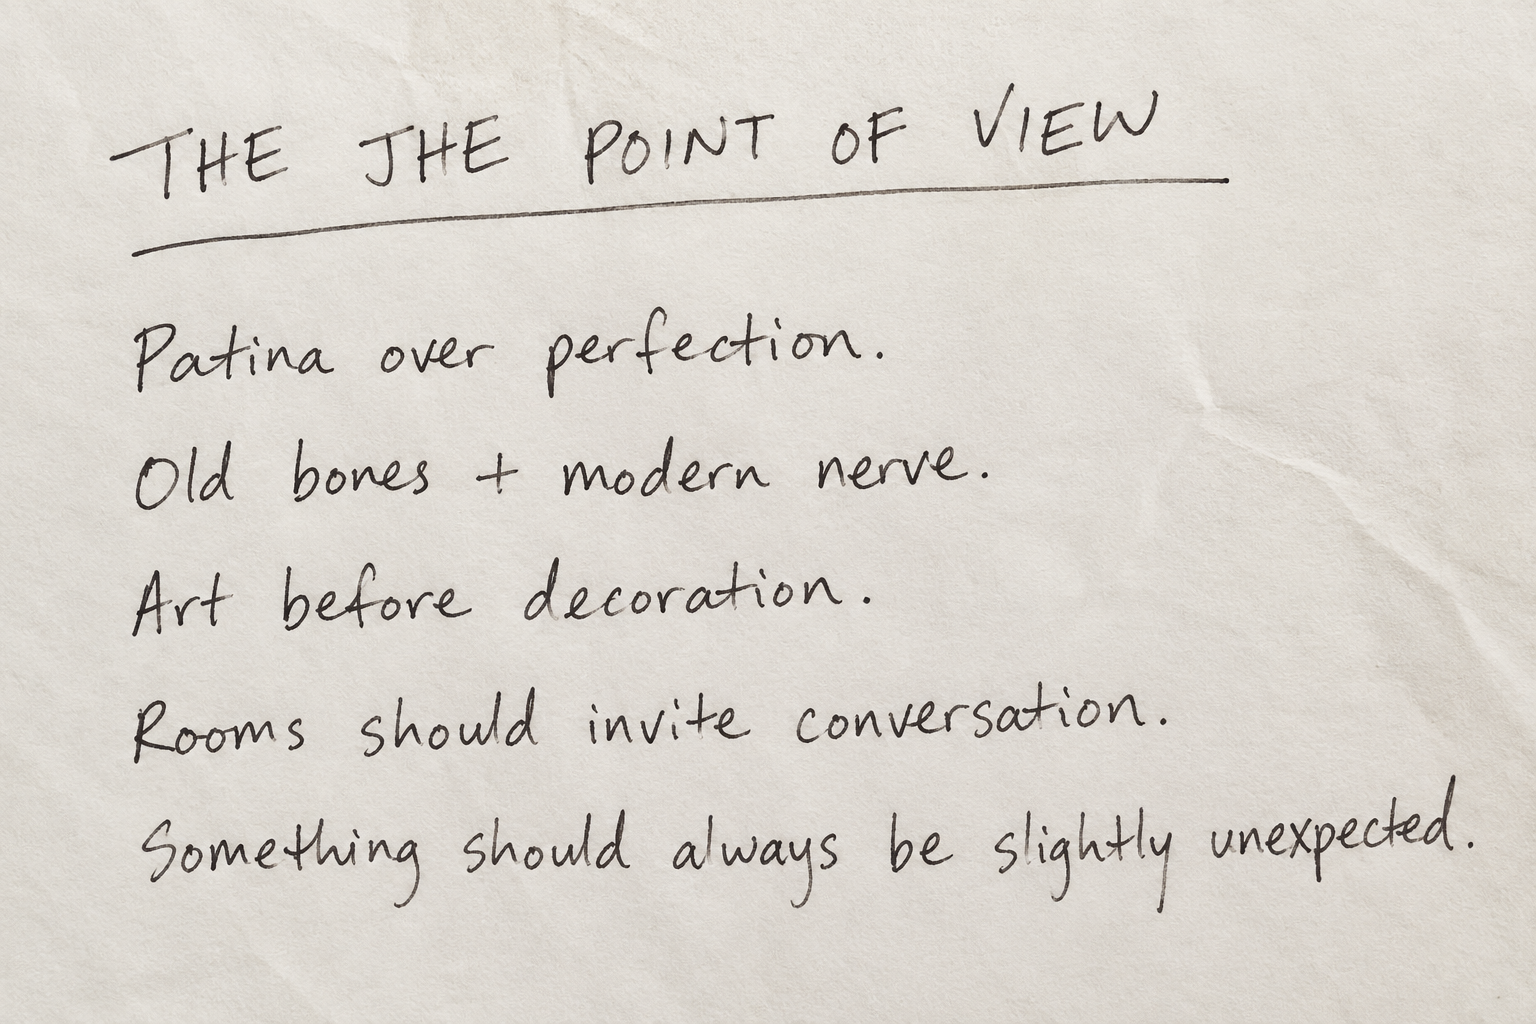 THE JHE POINT OF VIEW
Patina over perfection.
Old bones + modern nerve.
Art before decoration.
Rooms should invite conversation.
Something should always be slightly unexpected.